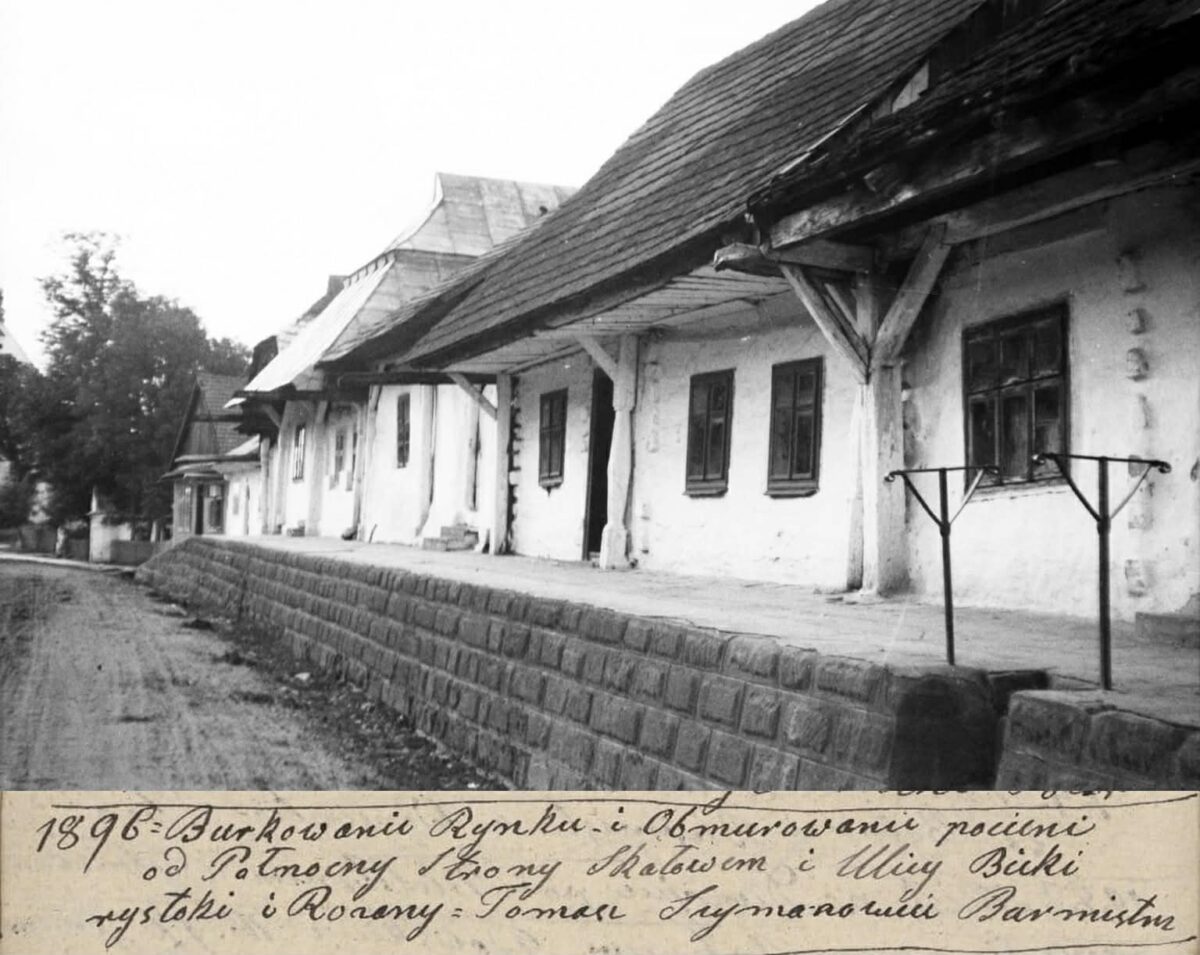 1896= Burkowanie Rynku i Obmurowanie pocieni
od Połnocny Strony Skałowem i Ulicy Bieki
rystoki i Rozany= Tomasz Szymanowicz Barmistrz